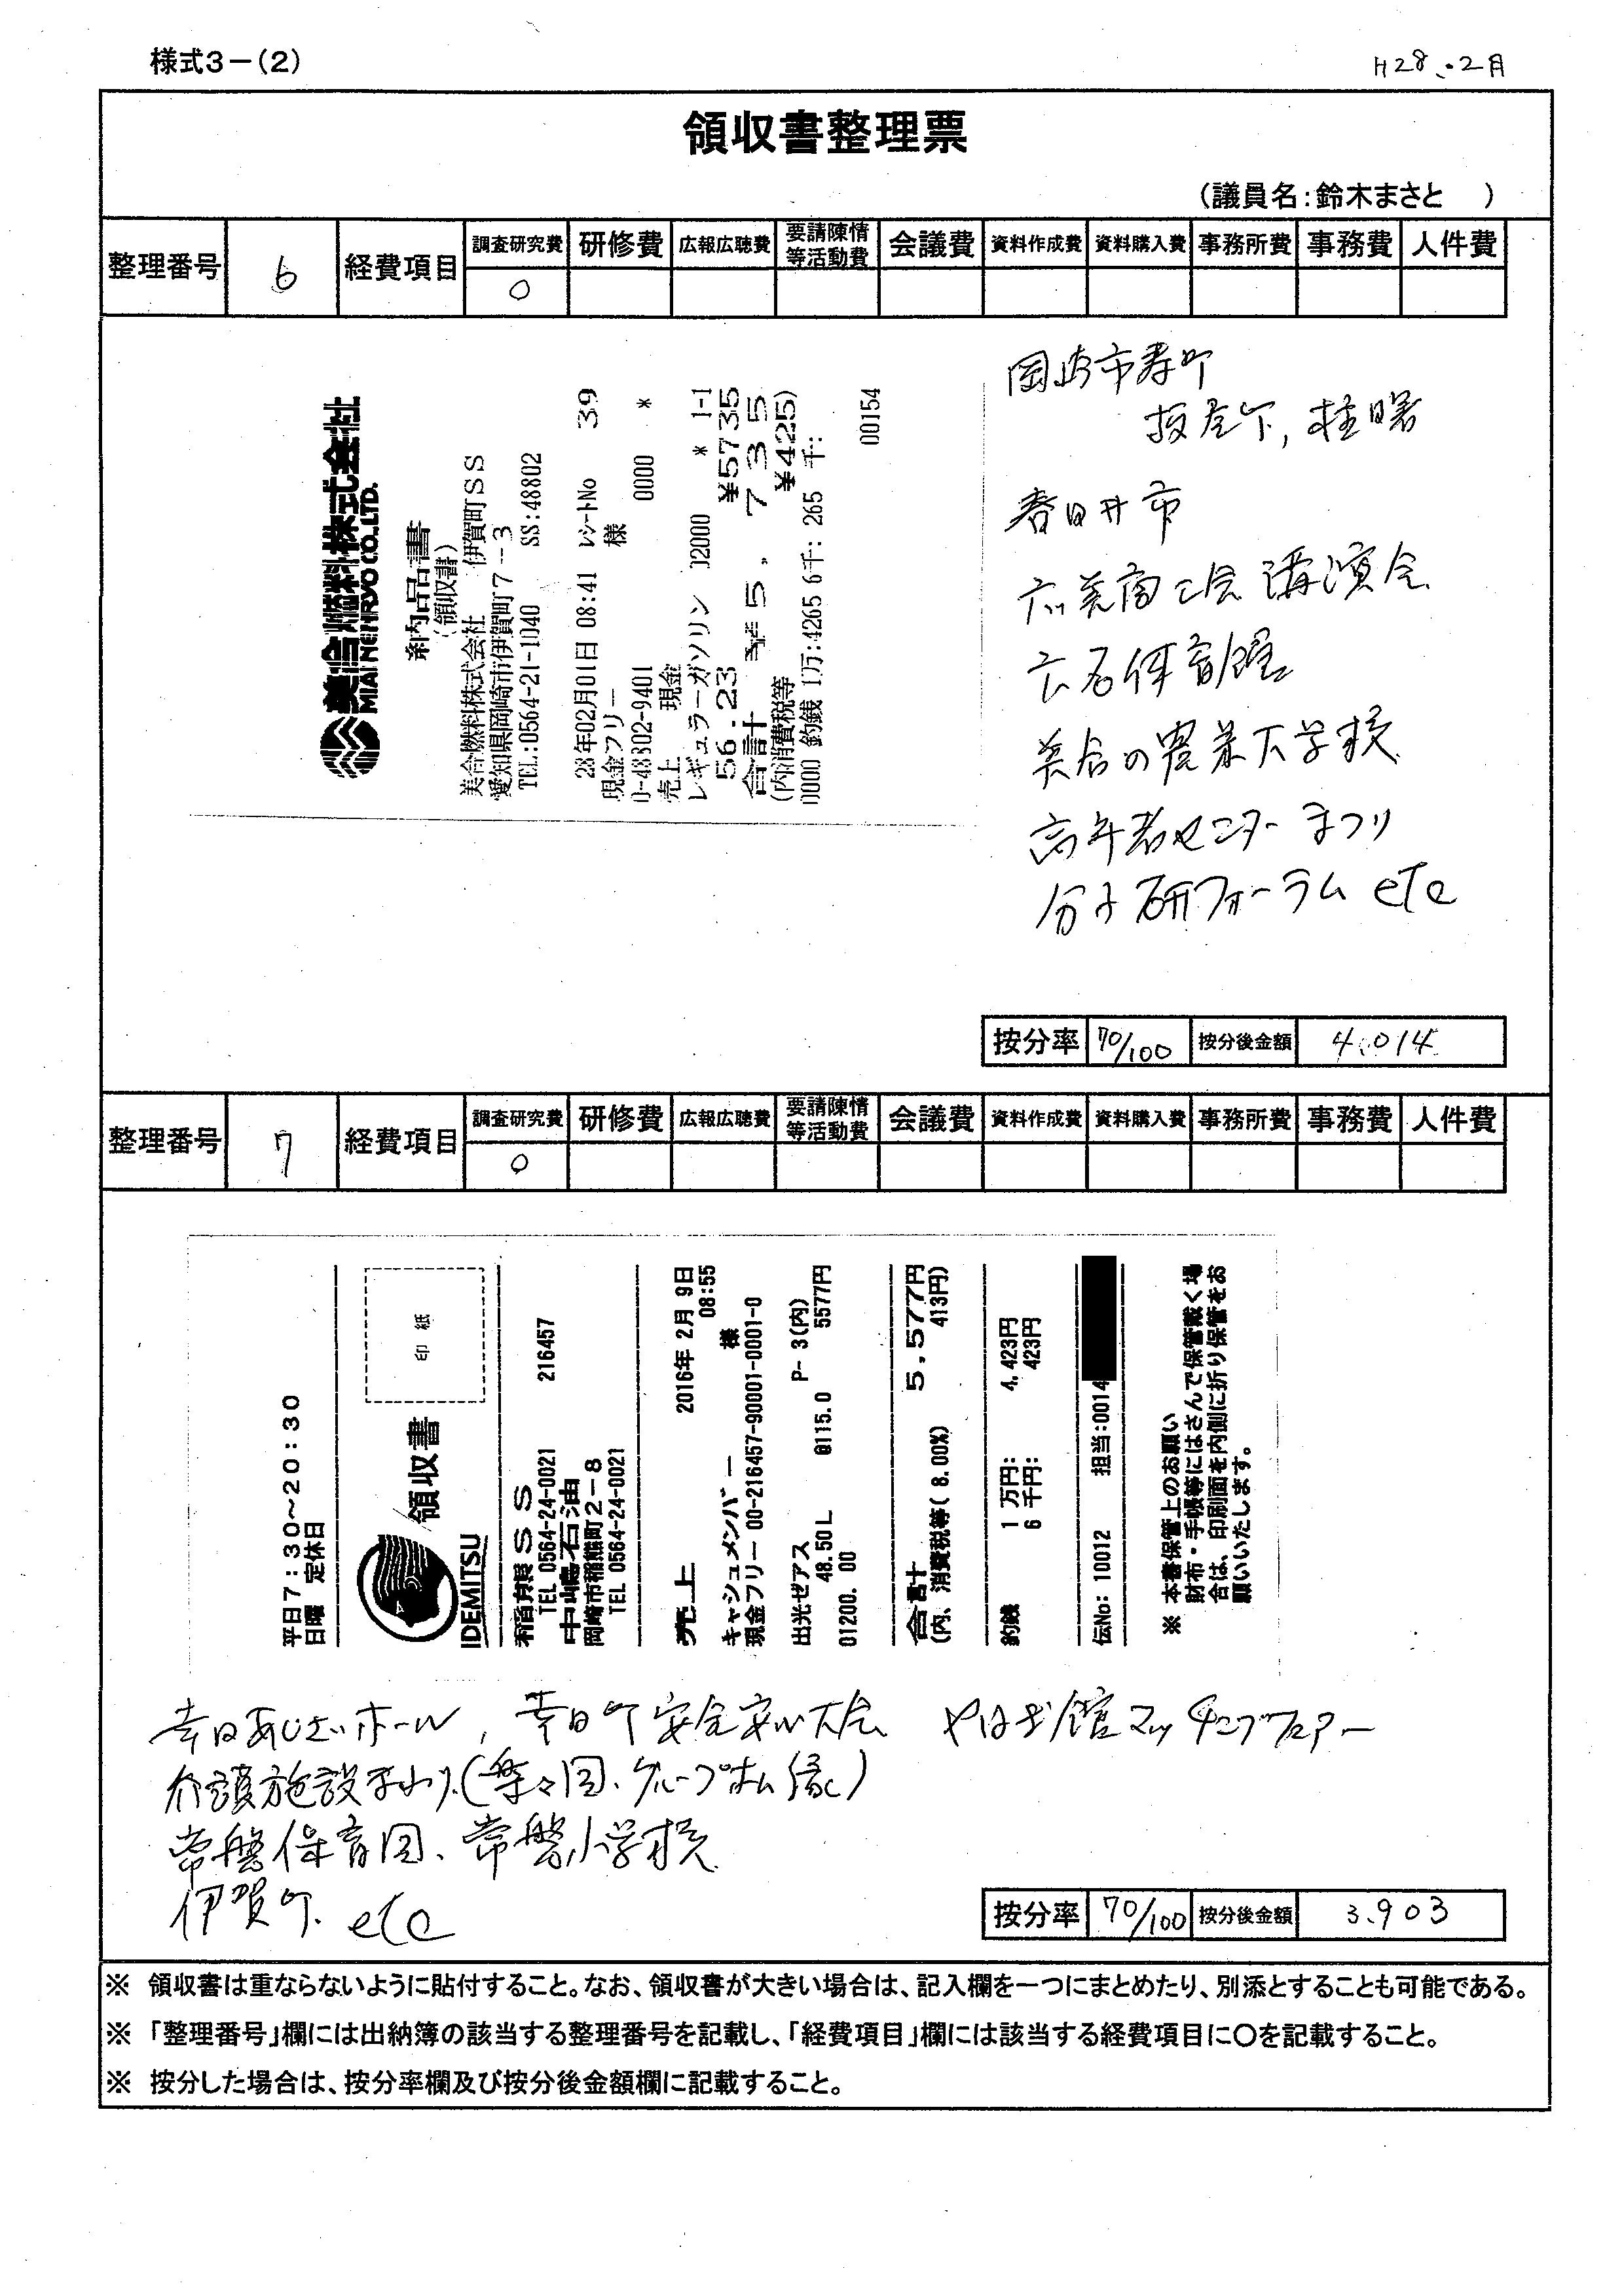 様式3－(2)
H28.2月
領収書整理票
(議員名:鈴木まさと　)
整理番号 6 経費項目 調査研究費 研修費 広報広聴費 要請陳情等活動費 会議費 資料作成費 資料購入費 事務所費 事務費 人件費
○
美合燃料株式会社
MIAI NENRYO CO.,LTD.
納品書
(領収書)
美合燃料株式会社 伊賀町SS
愛知県岡崎市伊賀町7-3
TEL:0564-21-1040 SS:48802
28年02月01日 08:41 レシートNo 39
現金フリー 様
0-48802-9401 0000 *
売上 現金
レギュラーガソリン J2000 * 1-1
56.23 ¥5735
合計 ¥5,735
(内消費税等 ¥425)
0000 釣銭 1万:4265 6千: 265 千:
00154
岡崎市寿町
板屋下, 桂曙
春日井市
六美商工会 講演会
六名体育館
美合の農業大学校
高年者センター まつり
分子研フォーラム etc
按分率 70/100 按分後金額 4,014
整理番号 7 経費項目 調査研究費 研修費 広報広聴費 要請陳情等活動費 会議費 資料作成費 資料購入費 事務所費 事務費 人件費
○
平日7:30～20:30
日曜 定休日
IDEMITSU 領収書
印紙
稲熊SS 216457
TEL 0564-24-0021
中嶋石油
岡崎市稲熊町2-8
TEL 0564-24-0021
売上 2016年 2月 9日
08:55
キャシュメンバー 様
現金フリー 00-216457-90001-0001-0
出光ゼアス P- 3(内)
48.50L @115.0 5577円
01200. 00
合計 5,577円
(内、消費税等( 8.00%) 413円)
釣銭 1 万円: 4,423円
6 千円: 423円
伝No: 10012 担当:0014
※ 本書保管上のお願い
財布・手帳等にはさんで保管戴く場
合は、印刷面を内側に折り保管をお
願いいたします。
幸田あじさいホール, 幸田町安全安心大会 やはぎ館マッチングフェアー
介護施設まわり(楽々園、グループホーム縁)
常磐保育園、常磐小学校
伊賀町. etc
按分率 70/100 按分後金額 3,903
※ 領収書は重ならないように貼付すること。なお、領収書が大きい場合は、記入欄を一つにまとめたり、別添とすることも可能である。
※ 「整理番号」欄には出納簿の該当する整理番号を記載し、「経費項目」欄には該当する経費項目に○を記載すること。
※ 按分した場合は、按分率欄及び按分後金額欄に記載すること。